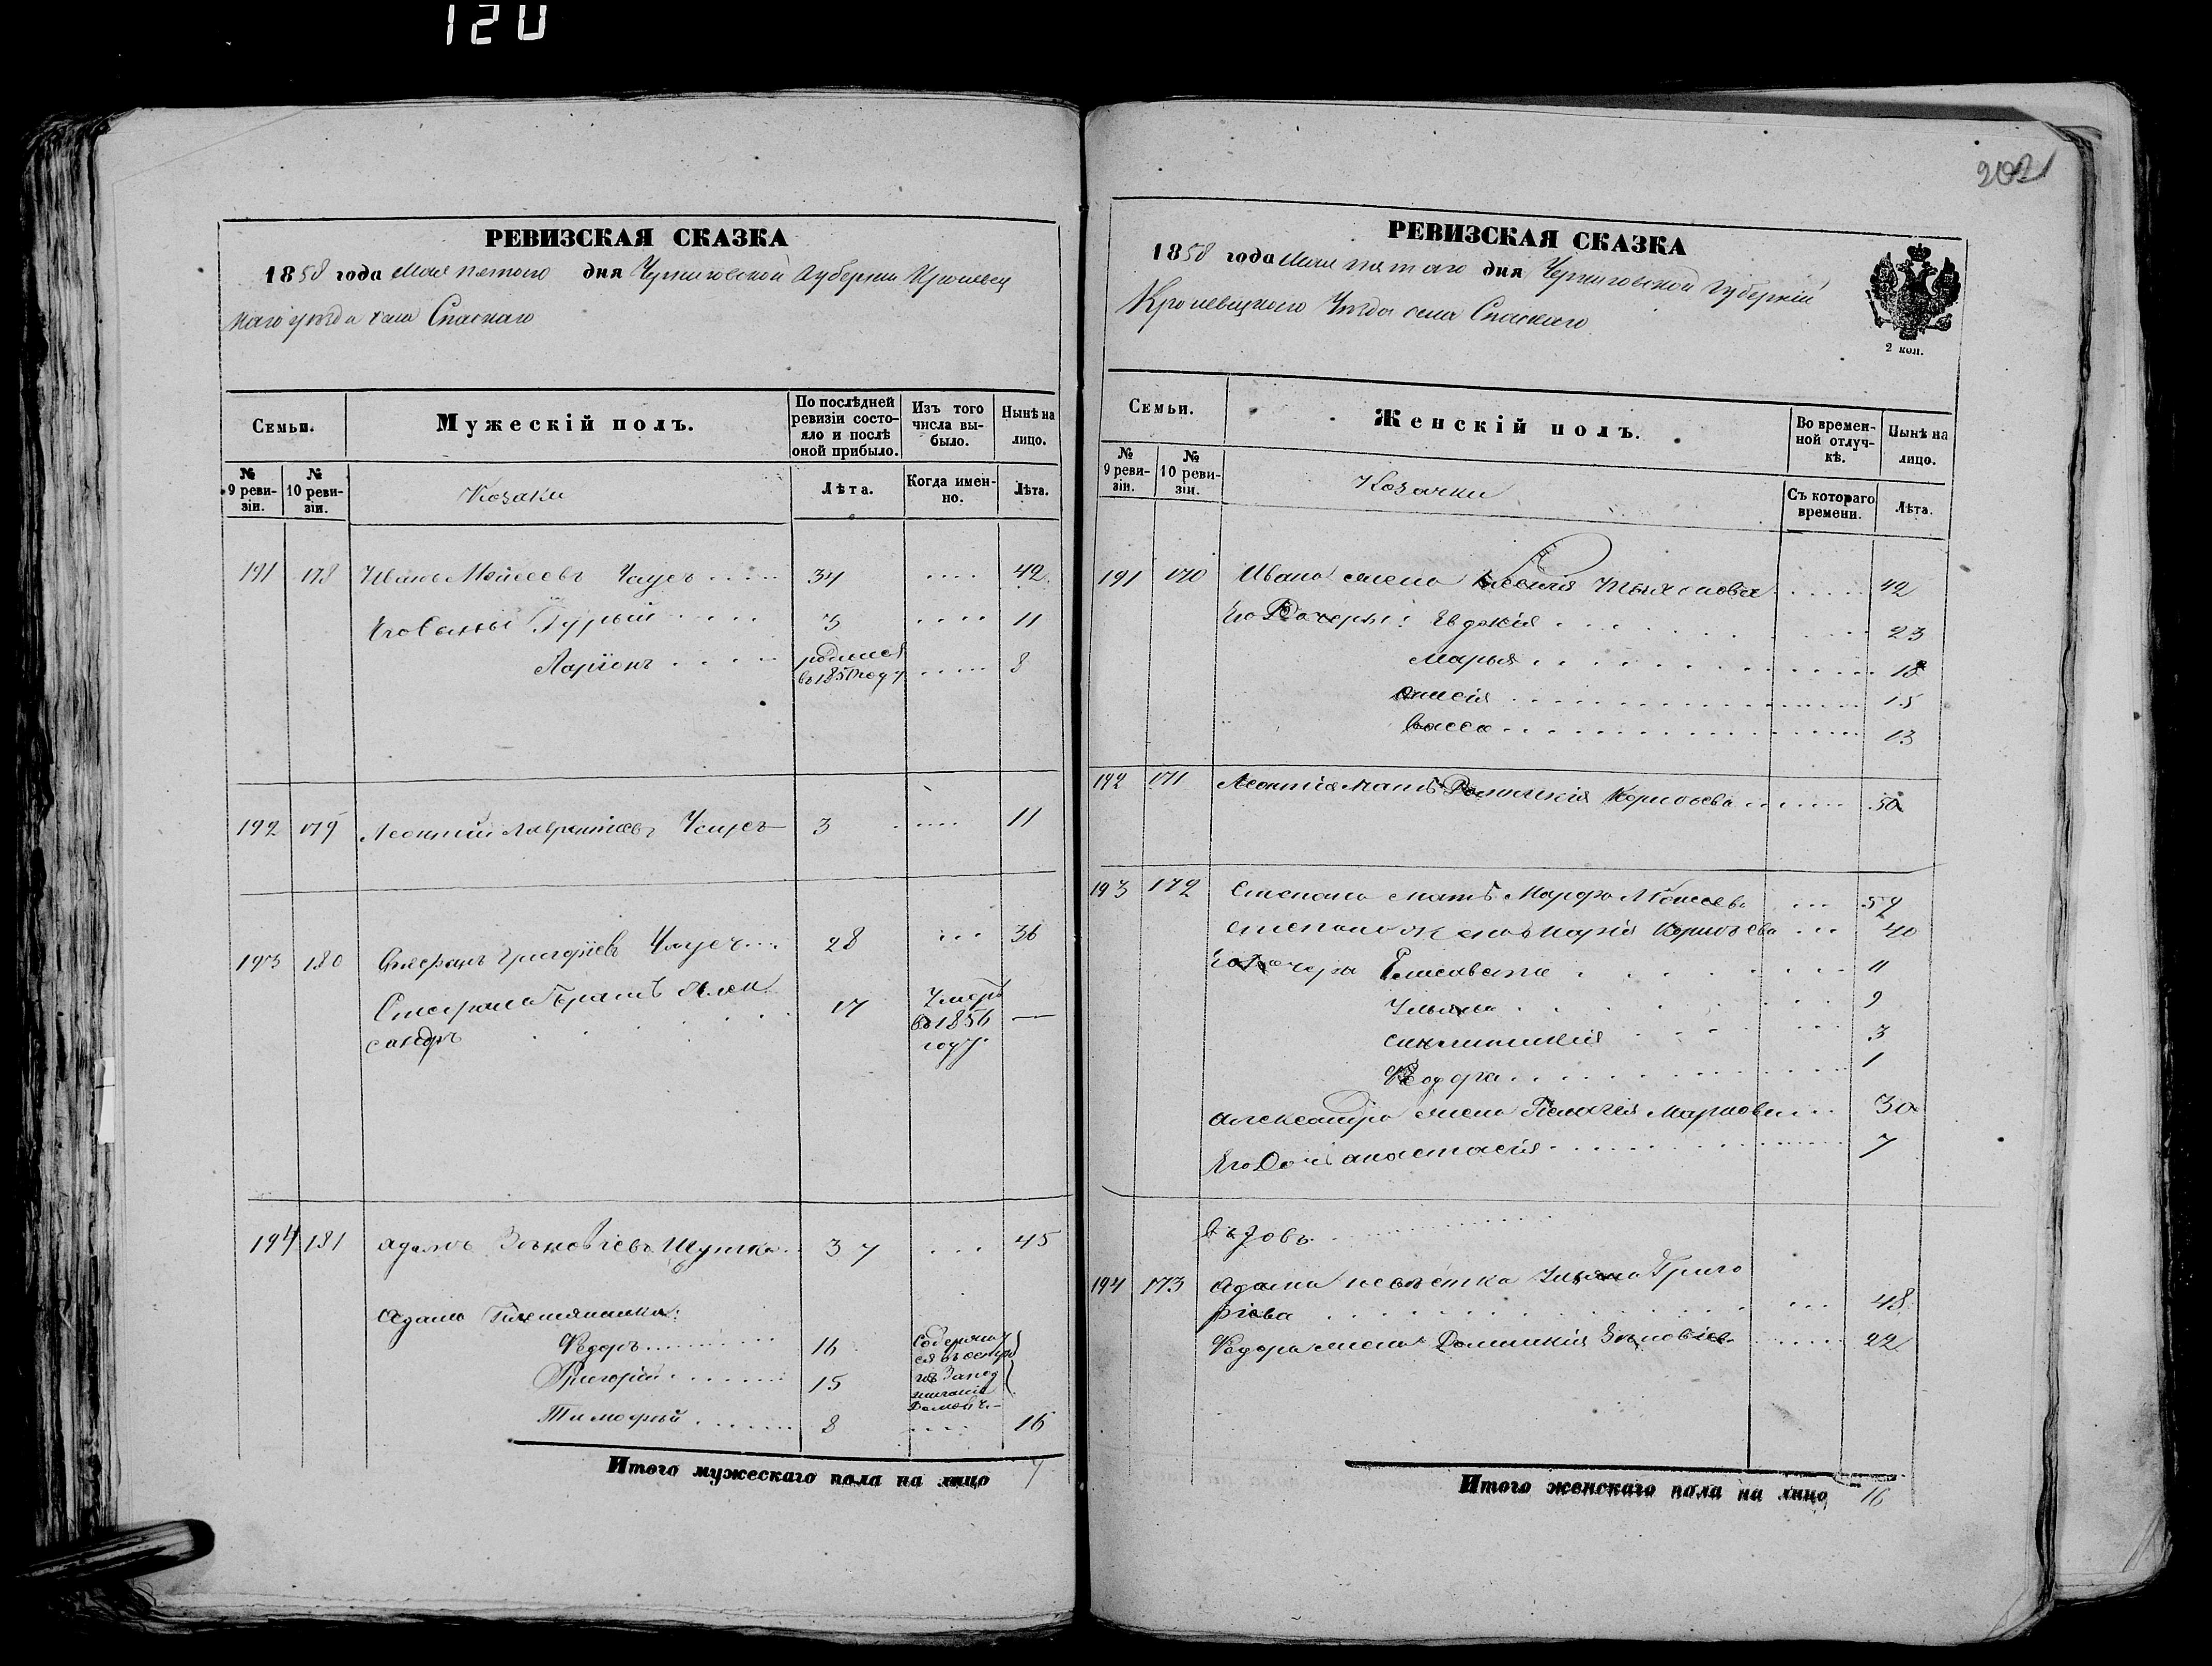 120
РЕВИЗСКАЯ СКАЗКА
1858 года Мая пятаго дня Черниговской Губернии Кролевец
каго уѣзда села Спаскаго
Семьи.
Мужескій полъ.
По послѣдней ревизіи состояло и послѣ оной прибыло.
Изъ того числа выбыло.
Нынѣ на лицо.
№ 9 ревизіи.
№ 10 ревизіи.
Козаки
Лѣта.
Когда именно.
Лѣта.
191 178 Иванъ Моисеевъ Чаусъ 34 42
Его Сыновья Гурьий 3 11
Ларіонъ родился въ 1850 году 8
192 179 Леонтий Лаврентиевъ Чаусъ 3 11
193 180 Стефанъ Григоріевъ Чаусъ 28 36
Стефана братъ Алек
сандръ 17 Умеръ въ 1856 году —
194 181 Адамъ Зѣновіевъ Шутка 37 45
Адама Племянники:
Федоръ 16
Григорій 15
Тимофѣй 8 16
Содержи
ся въ остро
гѣ
Итого мужескаго пола на лицо 7
202
РЕВИЗСКАЯ СКАЗКА
1858 года Мая пятаго дня Черниговской Губерніи
Кролевецкого Уѣзда села Спаскаго
2 коп.
Семьи.
Женскій полъ.
Во временной отлучкѣ.
Нынѣ на лицо.
№ 9 ревизіи.
№ 10 ревизіи.
Козачки
Съ котораго времени.
Лѣта.
191 170 Ивана жена 42
Его Дочери: Евдокія 23
Марья 18
Анисія 15
Васса 13
192 171 Леонтія мать Домникія Корнѣева 50
193 172 Степана мать Марфа Моисеева 59
Степана жена Марія Корнѣева 40
Его дочери Елисавета 11
Ульяна 9
Синклитикія 3
Федора 1
Александра жена Пелагея Маркова 30
Его Дочь Анастасія 7
194 173 Адама невѣстка Ульяна Григо
ріева 48
Федора жена Домникія Зѣновіева 22
Итого женскаго пола на лицо 16